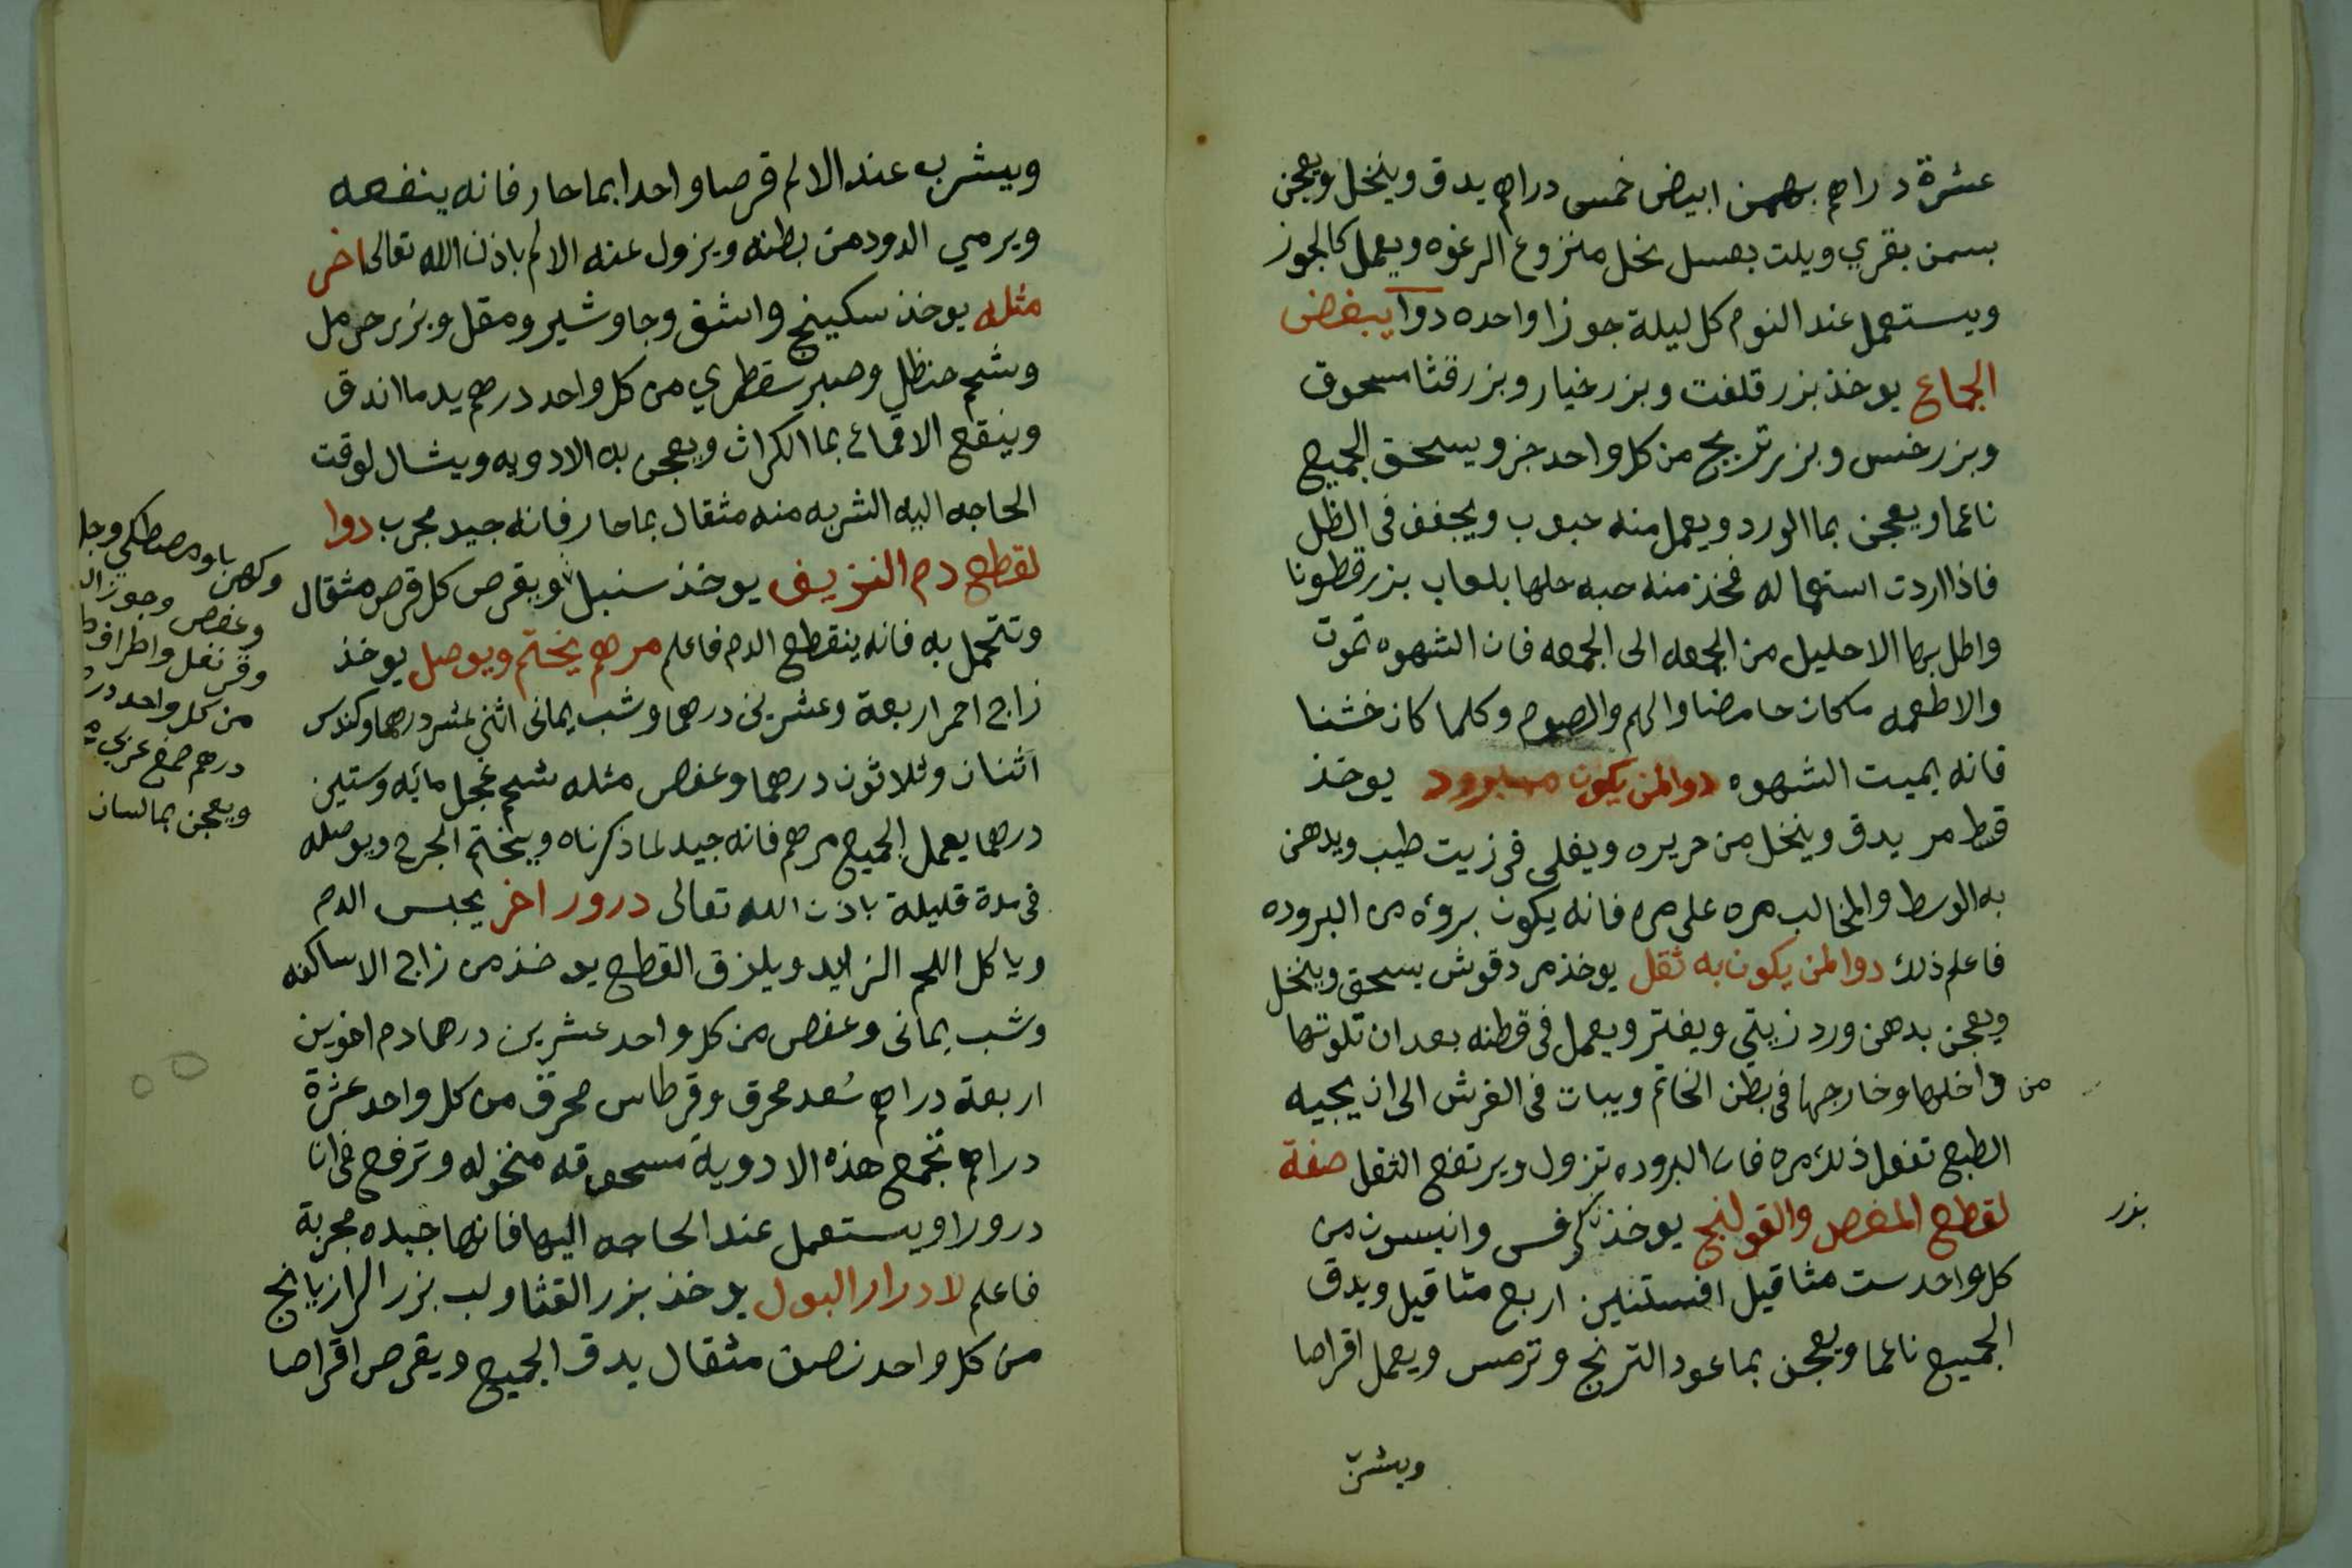 عشرة دراهم بهمن ابيض خمس دراهم يدق وينخل ويعجن
بسمن بقري ويلت بعسل نحل منزوع الرغوه ويعمل كالجوز
ويستعمل عند النوم كل ليلة جوزا واحده دوا يبغض
الجماع يوخذ بزر قلفت وبزر خيار وبزر قثا مسحوق
وبزر خس وبزر تريج من كل واحد جز ويسحق الجميع
ناعما ويعجن بما الورد ويعمل منه حبوب ويجفف في الظل
فاذا اردت استعماله فخذ منه حبه حلها بلعاب بزر قطونا
واطل بها الاحليل من الجمعه الى الجمعه فان الشهوه تموت
والاطعمه مكان حامضا والهم والصوم وكلما كان خشنا
فانه يميت الشهوه دوا لمن يكون مبرود يوخذ
قسط مر يدق وينخل من حريره ويغلى في زيت طيب ويدهن
به الوسط والمخالب مره على مره فانه يكون بروه من البروده
فاعلم ذلك دوا لمن يكون به ثقل يوخذ مردقوش يسحق وينخل
ويعجن بدهن ورد زيتي ويفتر ويعمل في قطنه بعد ان تلوتها
من داخلها وخارجها في بطن الخاتم ويبات في الفرش الى ان يجيه
الطبع تفعل ذلك مره فان البروده تزول ويرتفع الثقل صفة
لقطع المغص والقولنج يوخذ كرفس وانيسون من
بزر
كل واحد ست مثاقيل افسنتين اربع مثاقيل ويدق
الجميع ناعما ويعجن بما عود الترنج وترمس ويعمل اقراصا
ويشرب
ويشرب عند الالم قرصا واحدا بما حار فانه ينفعه
ويرمي الدود من بطنه ويزول عنه الالم باذن الله تعالى اخر
مثله يوخذ سكبينج واشق وجاوشير ومقل وبزر حرمل
وشحم حنظل وصبر سقطري من كل واحد درهم يد ما اندق
وينقع الاقماع بما الكراث ويعجن به الادويه ويشال لوقت
الحاجه اليه الشربه منه مثقال بما حار فانه جيد مجرب دوا
لقطع دم النزيف يوخذ سنبل ويقرص كل قرص مثقال
وتتحمل به فانه ينقطع الدم فاعلم مرهم يختم ويوصل يوخذ
زاج احمر اربعة وعشرين درهما وشب يماني اثني عشر درهما وكندس
اثنان وثلاثون درهما وعفص مثله شحم عجل مايه وستين
درهما يعمل الجميع مرهم فانه جيد لما ذكرناه ويختم الجرح ويوصله
في مدة قليلة باذن الله تعالى درور اخر يحبس الدم
وياكل اللحم الزايد ويلزق القطع يوخذ من زاج الاساكفه
وشب يماني وعفص من كل واحد عشرين درهما دم اخوين
اربعة دراهم سُعد محرق وقرطاس محرق من كل واحد عشرة
دراهم تجمع هذه الادوية مسحوقه منخوله وترفع في انا
درورا ويستعمل عند الحاجه اليها فانها جيده مجربة
فاعلم لادرار البول يوخذ بزر القثا ولب بزر الرازيانج
من كل واحد نصف مثقال يدق الجميع ويقرص اقراصا
وكهربا ومصطكي وجل
وعفص وجوز ال
وقرنفل واطراف
من كل واحد در
درهم صمغ عربي
ويعجن بما لسان